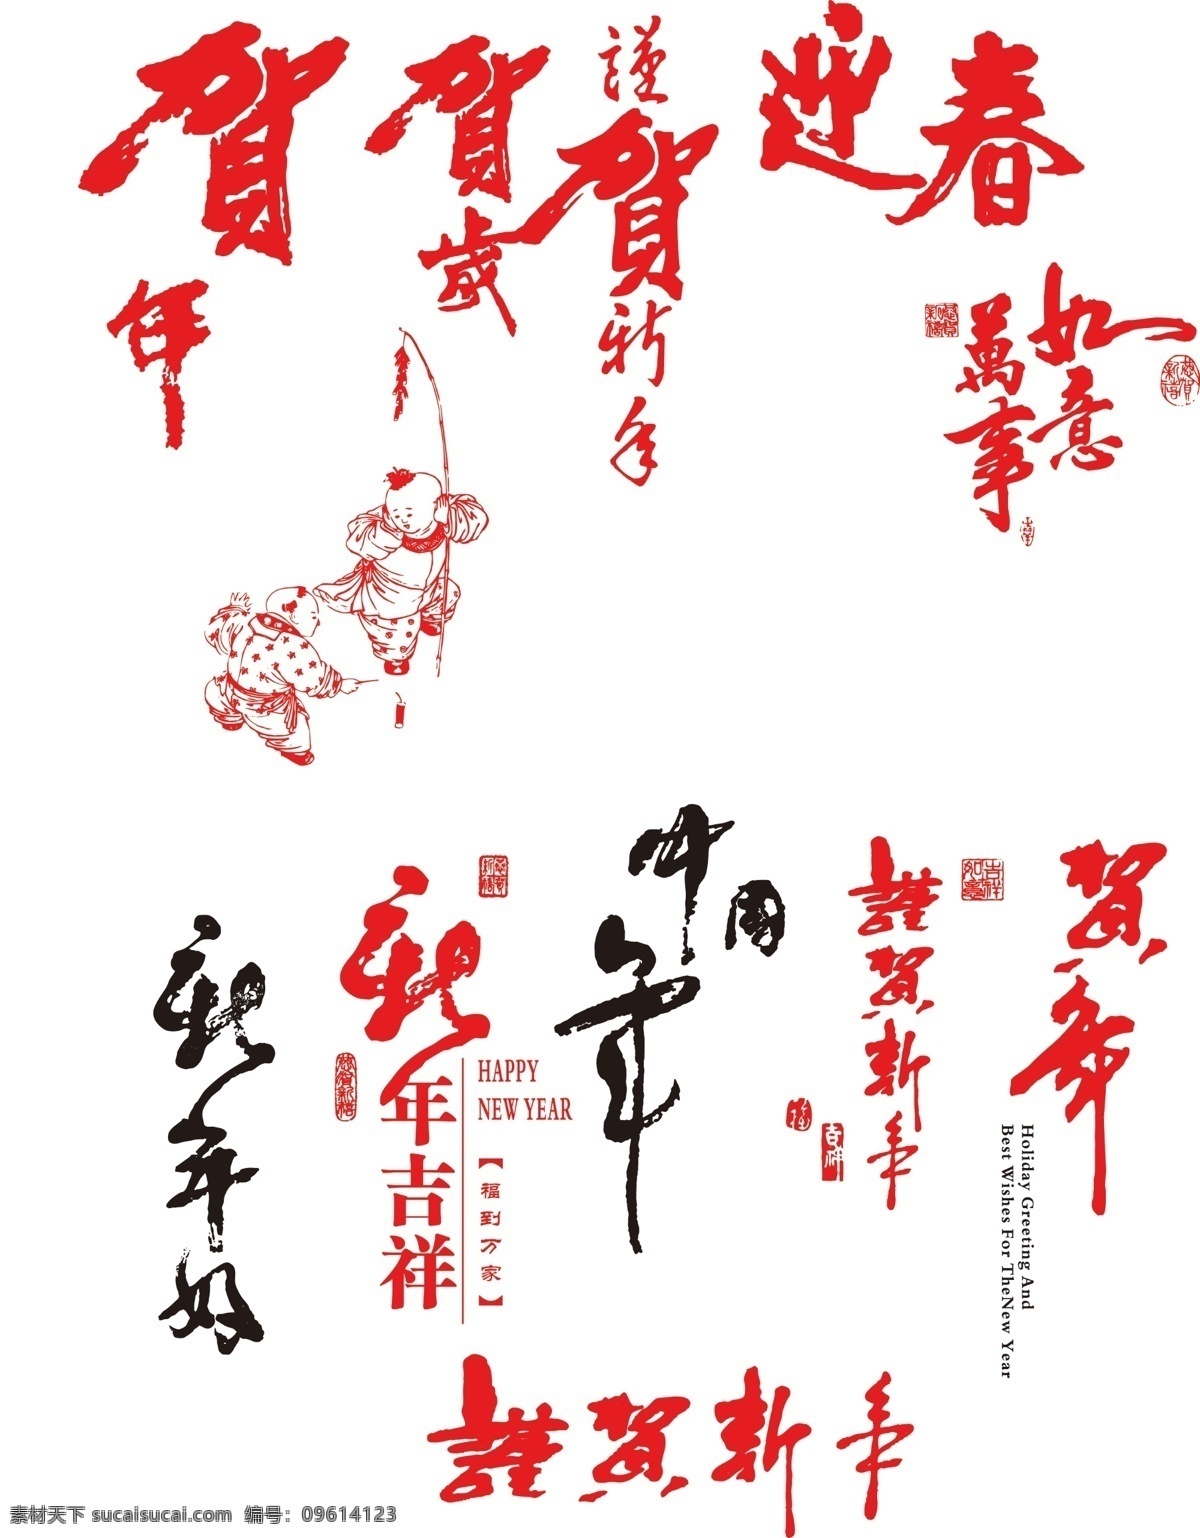 賀年
賀歲
謹賀新年
迎春
萬事如意
新年好
新年吉祥
HAPPY
NEW YEAR
【福到万家】
中国年
謹賀新年
吉祥如意
賀年
Holiday Greeting And
Best Wishes For TheNew Year
謹賀新年
素材天下 sucaisucai.com 编号：09614123